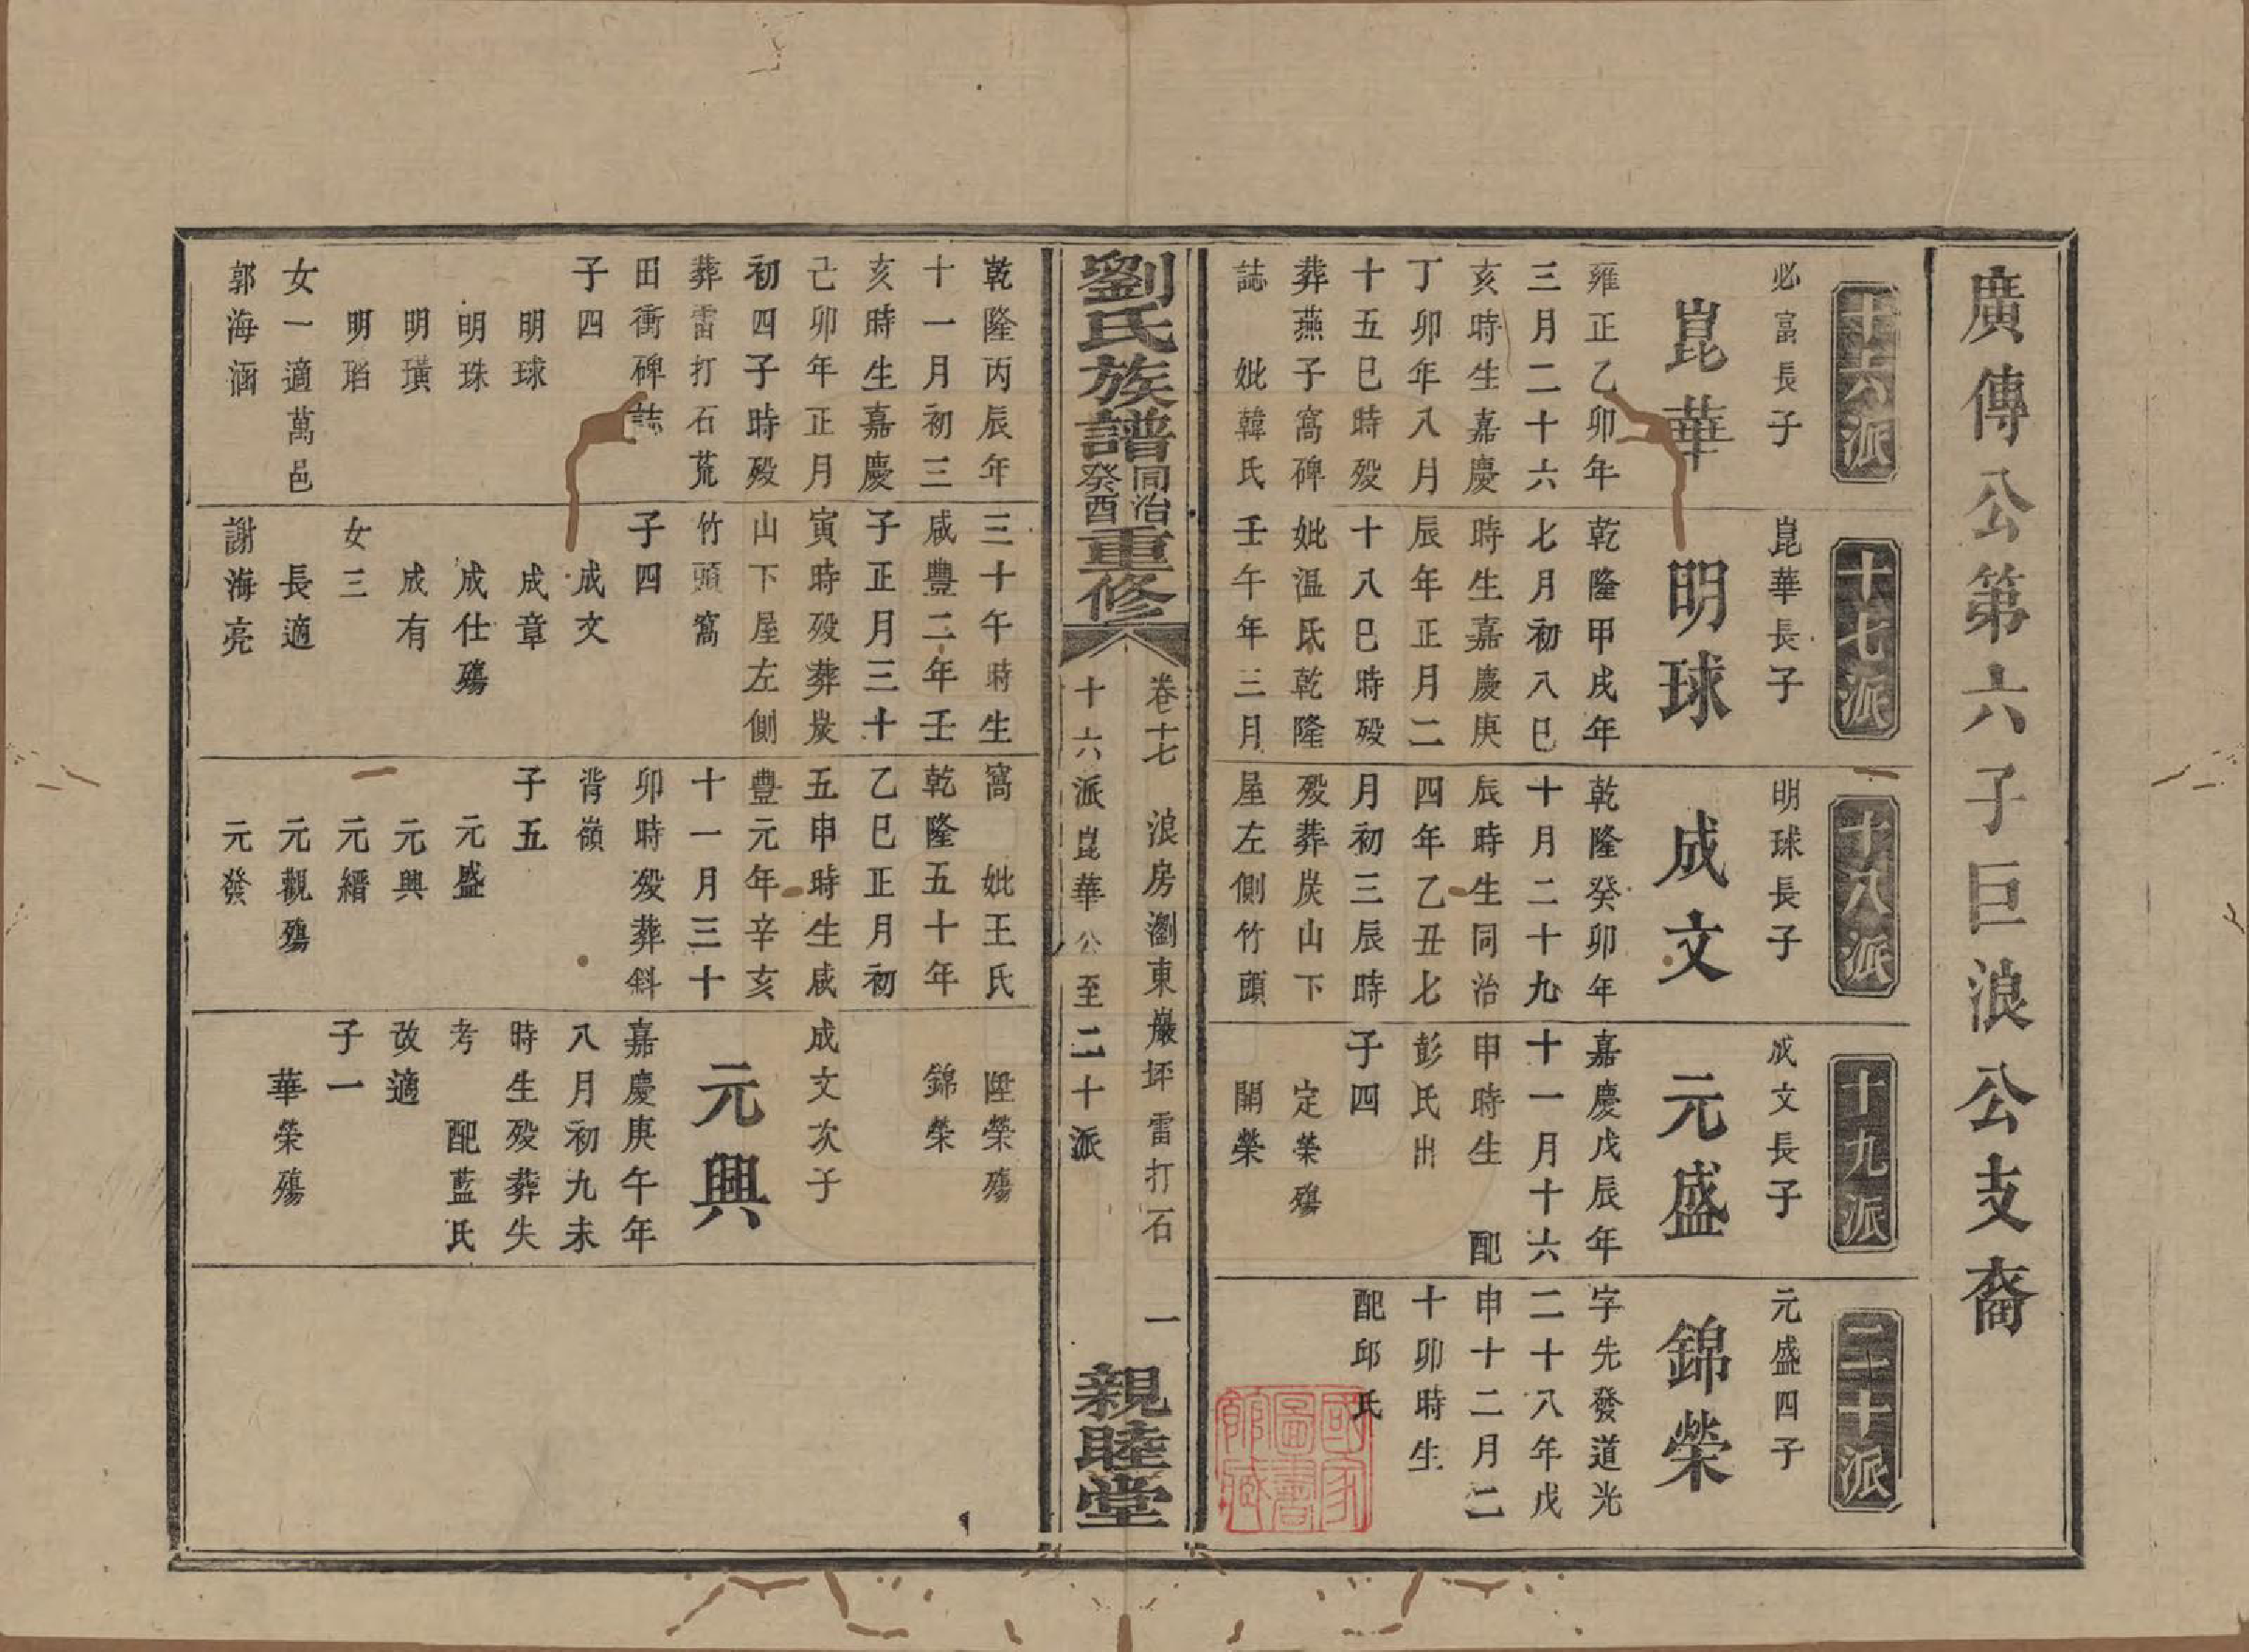 廣傳公第六子巨浪公支裔
十六派
必富長子
崑華
雍正乙卯年
三月二十六
亥時生嘉慶
丁卯年八月
十五巳時歿
葬燕子窩碑
誌 妣韓氏
十七派
崑華長子
明球
乾隆甲戌年
七月初八巳
時生嘉慶庚
辰年正月二
十八巳時歿
妣温氏乾隆
壬午年三月
十八派
明球長子
成文
乾隆癸卯年
十月二十九
辰時生同治
四年乙丑七
月初三辰時
歿葬炭山下
屋左側竹頭
十九派
成文長子
元盛
嘉慶戊辰年
十一月十六
申時生 配
彭氏出
子四
定榮殤
開榮
二十派
元盛四子
錦榮
字先發道光
二十八年戊
申十二月二
十卯時生
配邱氏
國家圖書館藏
劉氏族譜同治癸酉重修
卷十七 浪房瀏東巖坪雷打石 一
十六派崑華公至二十派
親睦堂
乾隆丙辰年
十一月初三
亥時生嘉慶
己卯年正月
初四子時歿
葬雷打石荒
田衝碑誌
子四
明球
明珠
明璜
明瑫
女一適萬邑
郭海涵
三十午時生
咸豐二年壬
子正月三十
寅時歿葬炭
山下屋左側
竹頭窩
子四
成文
成章
成仕殤
成有
女三
長適
謝海亮
窩 妣王氏
乾隆五十年
乙巳正月初
五申時生咸
豐元年辛亥
十一月三十
卯時歿葬斜
背嶺
子五
元盛
元興
元縉
元觀殤
元發
陞榮殤
錦榮
成文次子
元興
嘉慶庚午年
八月初九未
時生歿葬失
考 配藍氏
改適
子一
華榮殤